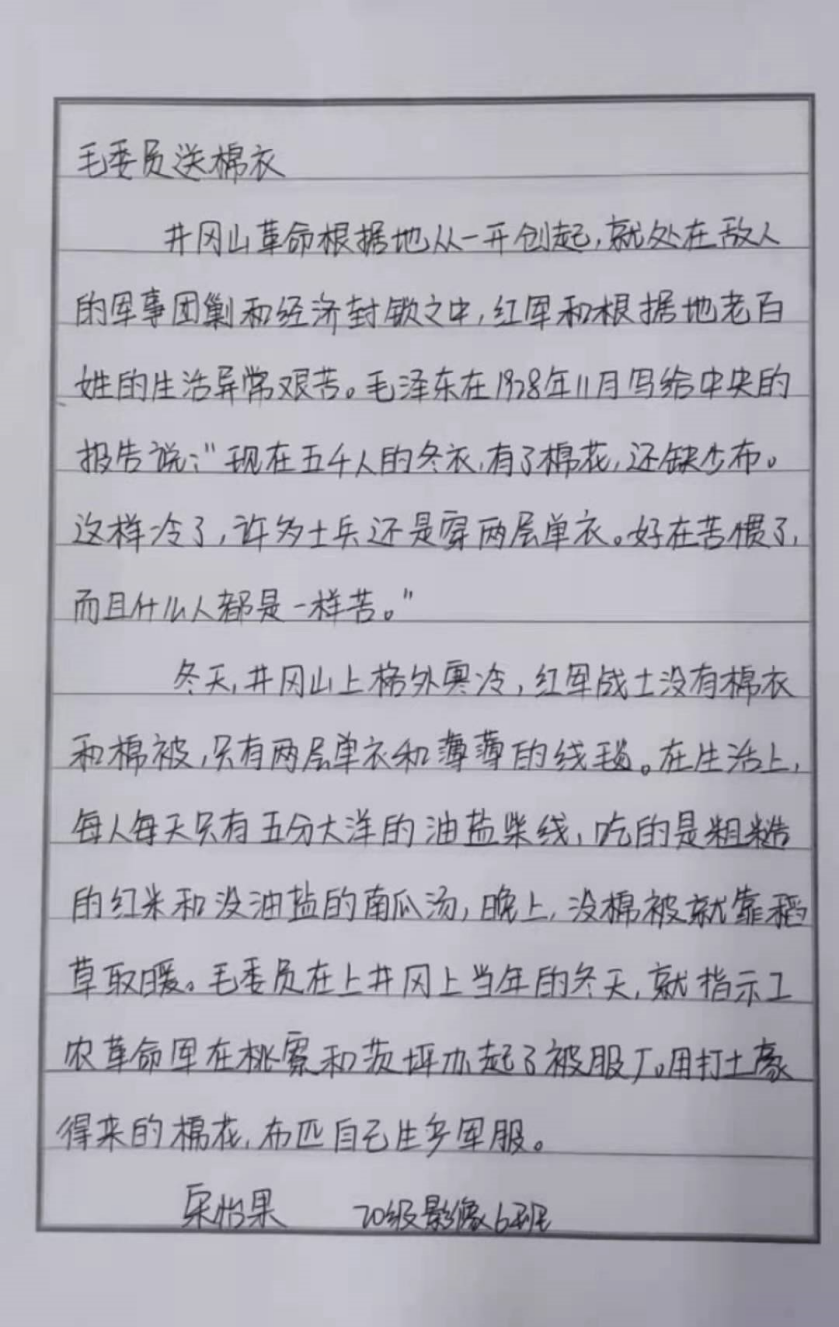 毛委员送棉衣
井冈山革命根据地从一开创起,就处在敌人
的军事围剿和经济封锁之中,红军和根据地老百
姓的生活异常艰苦。毛泽东在1928年11月写给中央的
报告说:“现在五千人的冬衣,有了棉花,还缺少布。
这样冷了,许多士兵还是穿两层单衣。好在苦惯了,
而且什么人都是一样苦。”
冬天,井冈山上格外寒冷,红军战士没有棉衣
和棉被,只有两层单衣和薄薄的线毯。在生活上,
每人每天只有五分大洋的油盐柴线,吃的是粗糙
的红米和没油盐的南瓜汤,晚上,没棉被就靠稻
草取暖。毛委员在上井冈上当年的冬天,就指示工
农革命军在桃寮和茨坪办起了被服厂。用打土豪
得来的棉花,布匹自己生多军服。
怡果 20级影像6班